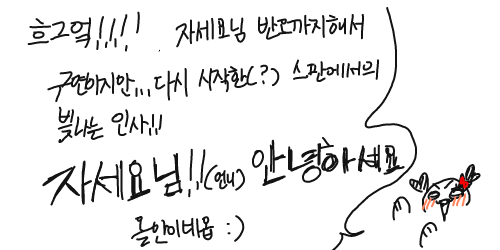 흐그엌!!!! 자세요님 반모까지해서
구면이지만,,, 다시 시작한(?) 스판에서의
빛나는 인사!!!
자세요님!!(언니) 안녕하세요
몰인이네욥 :)